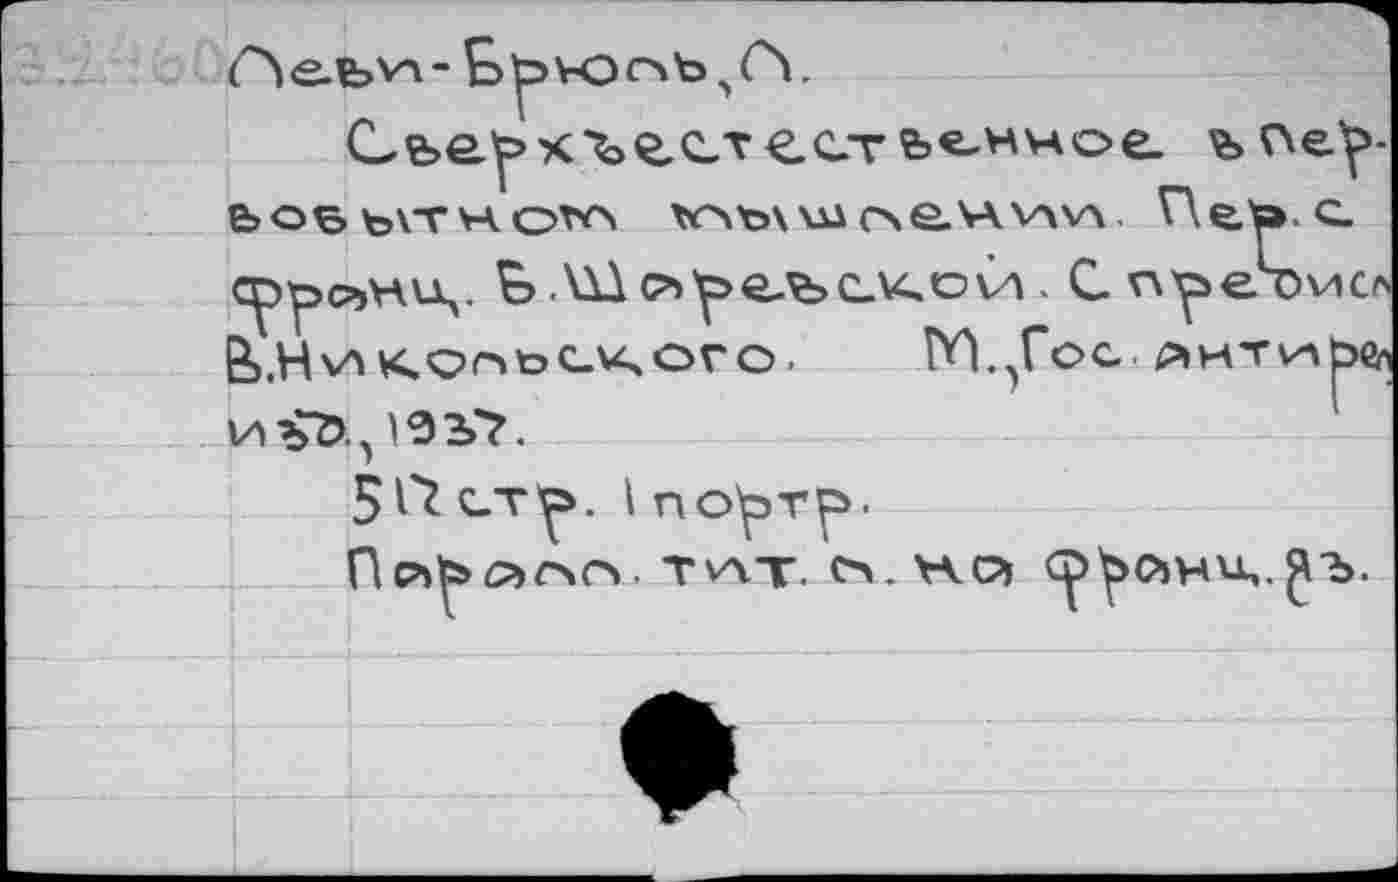 Леви-Брюль, Л.
Сверхъестественное в пер-
вобытном мышлении. Пер. с
франц. Б. Шаревской. С предисл
В. Никольского. М., Гос. антирел
изд., 1937.
517 стр. 1 портр.
Паралл. тит. л. на франц. яз.